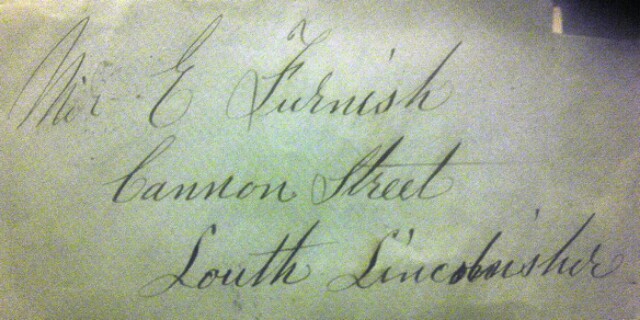 Mr E Furnish
Cannon Street
Louth Lincolnisher